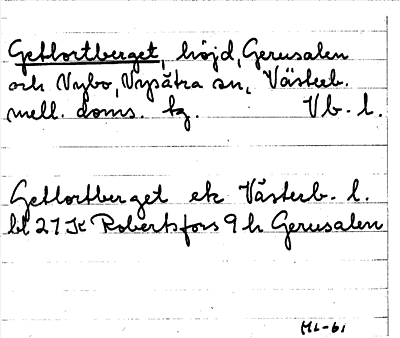 Getlortberget, höjd, Gerusalen
och Vybo, Nysätra sn, Västerb.
mell. doms. tg. Vb. l.
Getlortberget ek Västerb. l.
bl 27 JK Robertsfors 9 h Gerusalen
ML-61